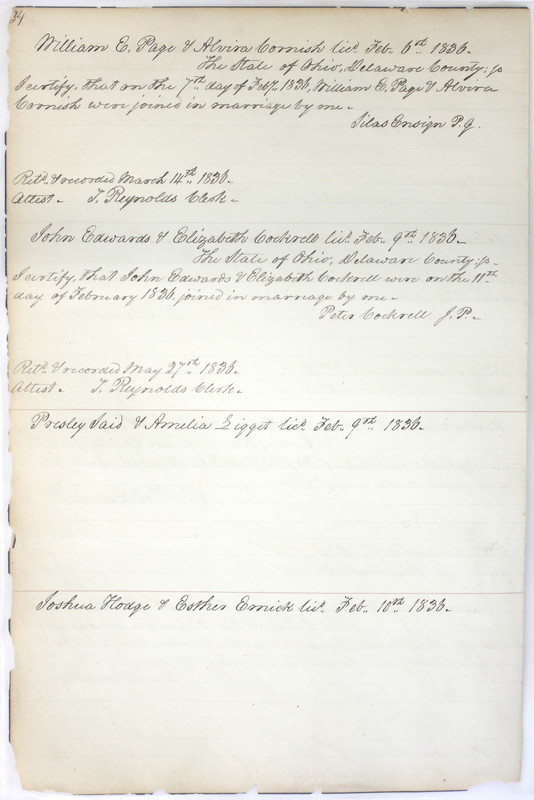 34
William E. Page & Alvira Cornish lic. Feb. 6th 1836.
The State of Ohio, Delaware County: ss
I certify, that on the 7th day of Feby. 1836, William E. Page & Alvira
Cornish were joined in marriage by me.
Silas Ensign P.G.
Retd. & recorded March 14th 1836.
Attest. T. Reynolds Clerk.
John Edwards & Elizabeth Cockrell lic. Feb. 9th 1836.
The State of Ohio, Delaware County: ss.
I certify, that John Edwards & Elizabeth Cockrell were on the 11th
day of February 1836, joined in marriage by me.
Peter Cockrell J.P.
Retd. & recorded May 27th 1836.
Attest. T. Reynolds Clerk.
Presley Said & Amelia Ligget lic. Feb. 9th 1836.
Joshua Hodge & Esther Emick lic. Feb. 10th 1836.